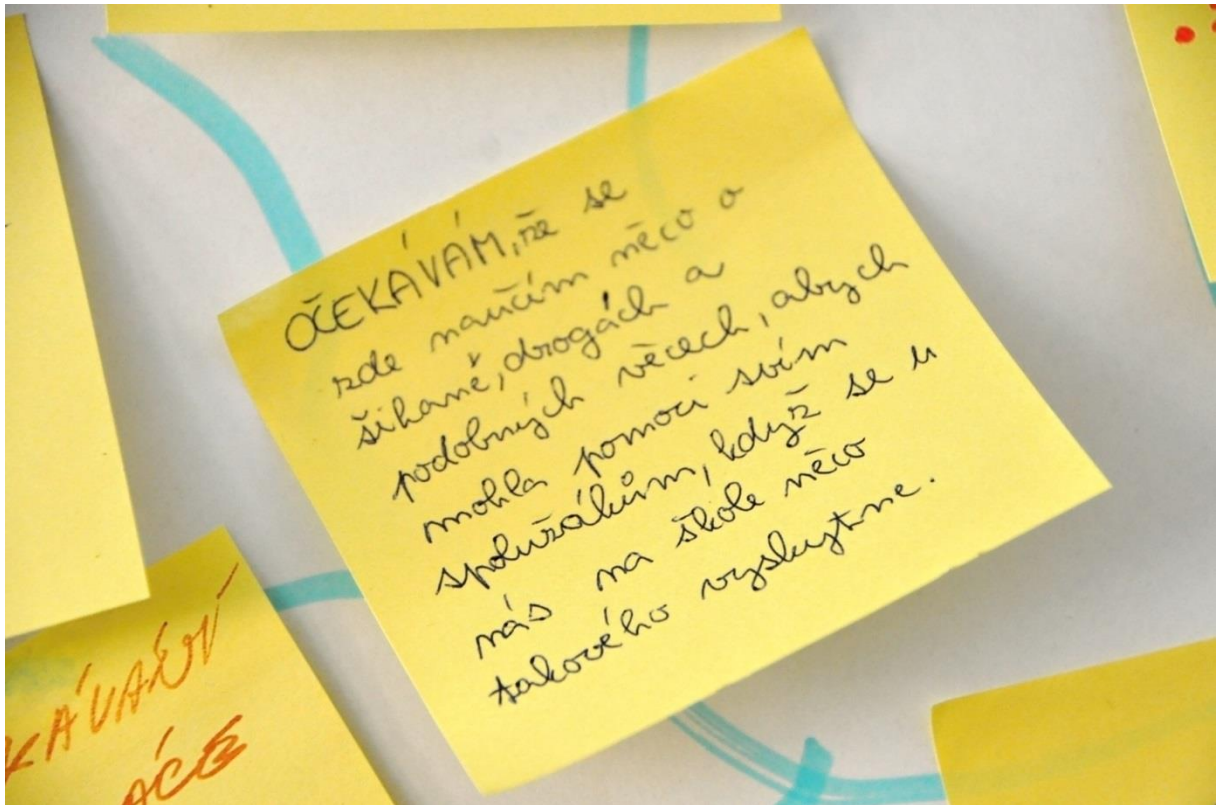 OČEKÁVÁM, že se
zde naučím něco o
šikaně, drogách a
podobných věcech, abych
mohla pomoci svím
spolužákům, když se u
nás na škole něco
takového vyskytne.